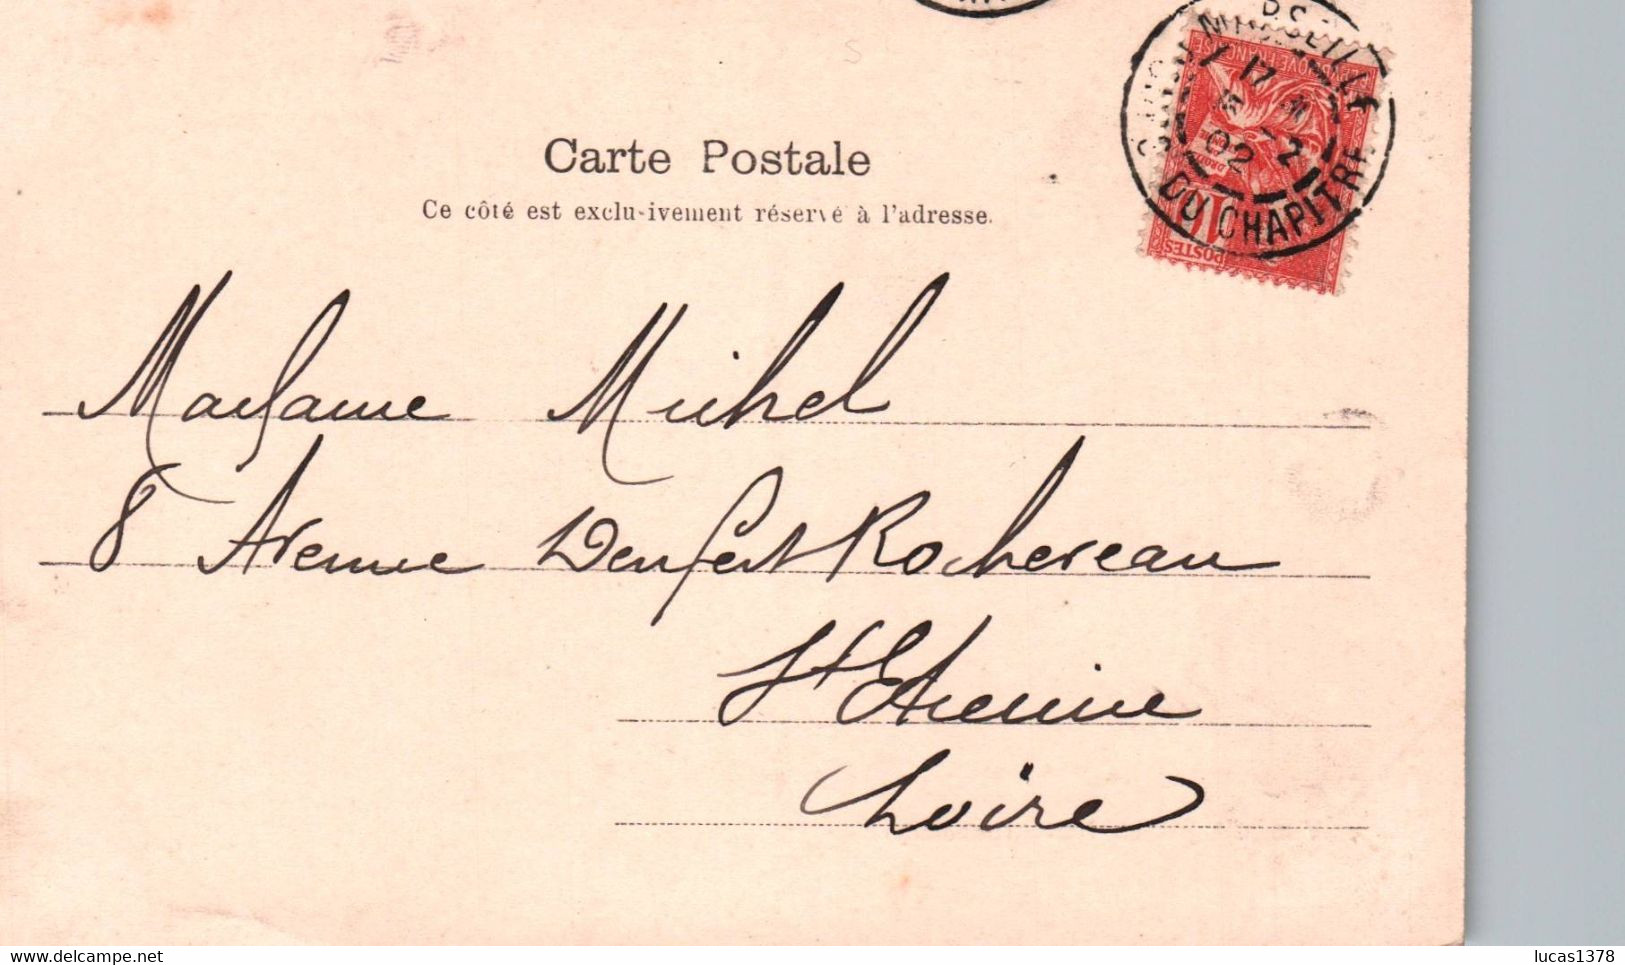 MARSEILLE
DU CHAPITRE
17
02
POSTES
Carte Postale
Ce côté est exclu-ivement réservé à l'adresse.
Madame Michel
8 Avenue Denfert Rochereau
St Etienne
Loire
delcampe.net
lucas1378